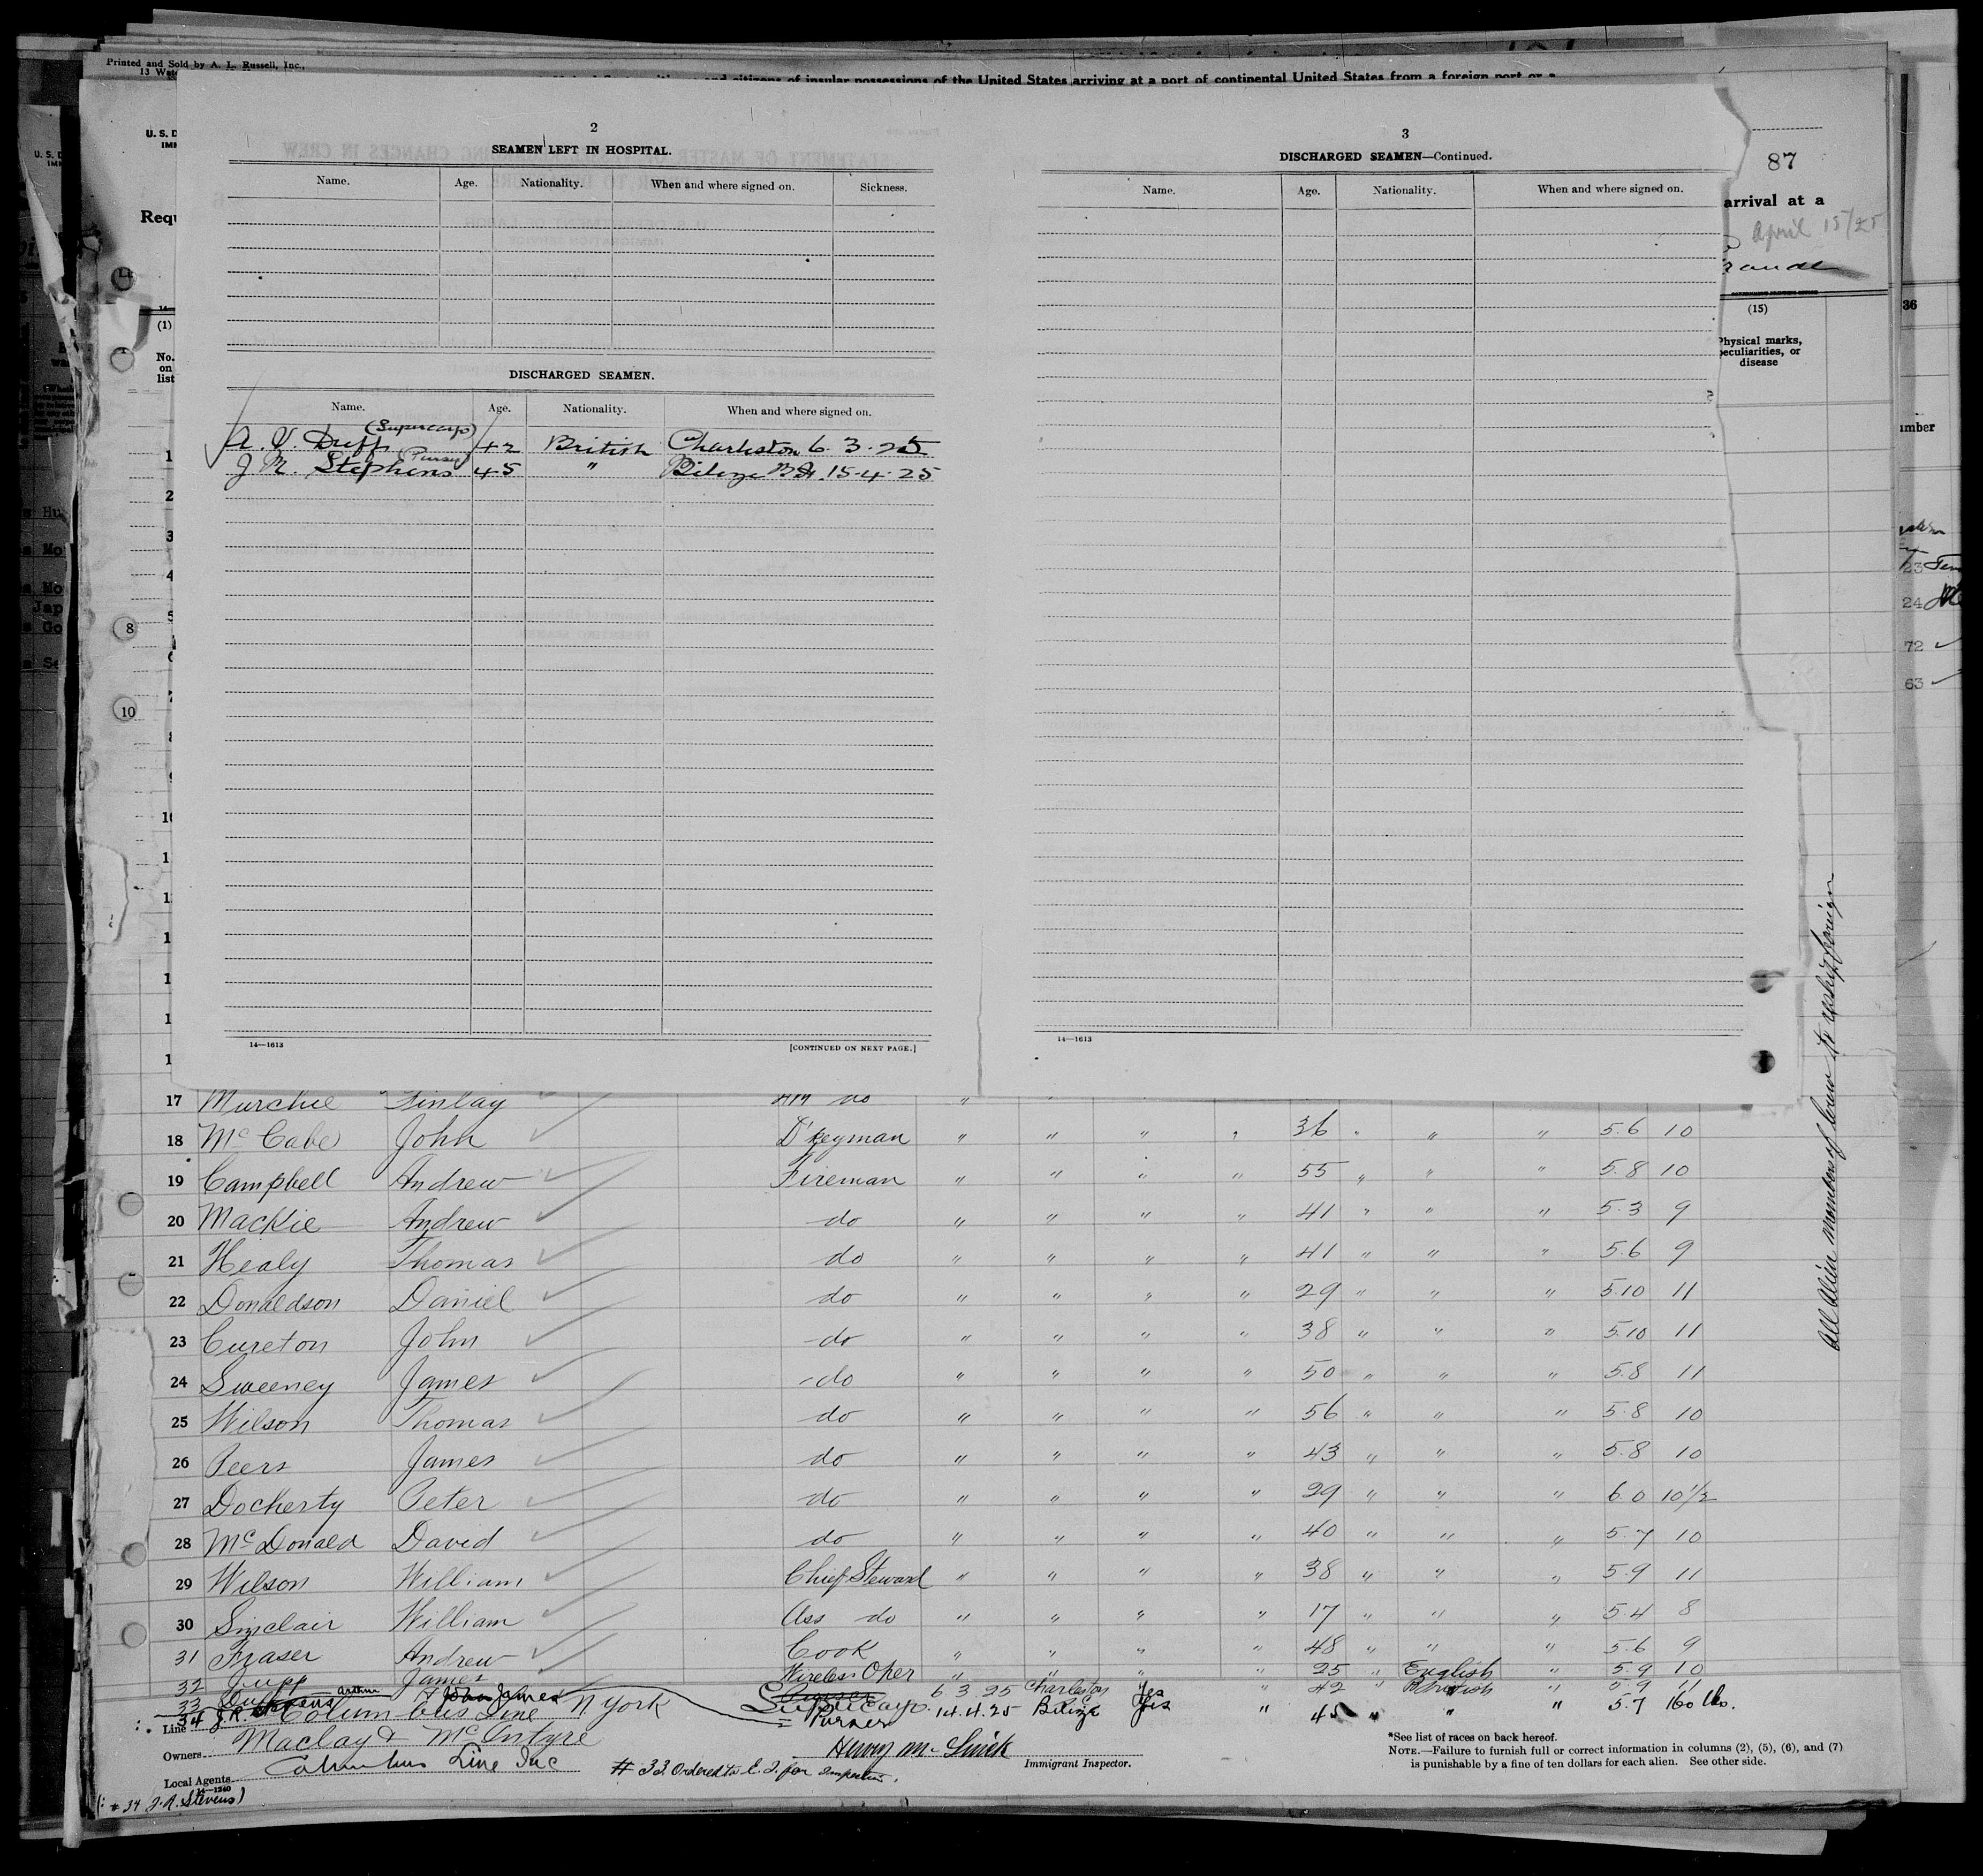 Printed and Sold by A. L. Russell, Inc.,
citizens of insular possessions of the United States arriving at a port of continental United States from a foreign port or a
2
SEAMEN LEFT IN HOSPITAL.
Name. Age. Nationality. When and where signed on. Sickness.
DISCHARGED SEAMEN.
Name. Age. Nationality. When and where signed on.
(Supercargo)
A. Y. Duff 42 British Charleston 6.3.25
Purser
J. R. Stephens 45 " Belize B.H. 15.4.25
14—1613 [CONTINUED ON NEXT PAGE.]
3
DISCHARGED SEAMEN—Continued.
Name. Age. Nationality. When and where signed on.
14—1613
87
arrival at a
April 15/25
(15)
Physical marks, peculiarities, or disease
36
(1)
No. on list
8
10
23
24
72
63
All Alien members of crew to reship foreign
17 Murchie Finlay do "
18 McCabe John D'keyman " " " " 36 " " " 5.6 10
19 Campbell Andrew Fireman " " " " 55 " " " 5.8 10
20 Mackie Andrew do " " " " 41 " " " 5.3 9
21 Healy Thomas do " " " " 41 " " " 5.6 9
22 Donaldson Daniel do " " " " 29 " " " 5.10 11
23 Cureton John do " " " " 38 " " " 5.10 11
24 Sweeney James do " " " " 50 " " " 5.8 11
25 Wilson Thomas do " " " " 56 " " " 5.8 10
26 Peers James do " " " " 43 " " " 5.8 10
27 Docherty Peter do " " " " 29 " " " 6.0 10½
28 McDonald David do " " " " 40 " " " 5.7 10
29 Wilson William Chief Steward " " " " 38 " " " 5.9 11
30 Sinclair William Ass do " " " " 17 " " " 5.4 8
31 Fraser Andrew Cook " " " " 48 " " " 5.6 9
32 Jupp James Wireless Oper " " " " 25 " English " 5.9 10
33 Duff Arthur Supercargo 6 3 25 Charleston Yes " 42 " British " 5.9 11
34 J.R. John James Purser 14.4.25 Belize Yes " 45 " " " 5.7 160 lbs.
Line Columbus Line N York
Owners Maclay & McIntyre
Local Agents Columbus Line Inc
14—1240
# 33 Ordered to
Immigrant Inspector.
# 34 J. R. Stevens)
*See list of races on back hereof.
NOTE.—Failure to furnish full or correct information in columns (2), (5), (6), and (7)
is punishable by a fine of ten dollars for each alien. See other side.